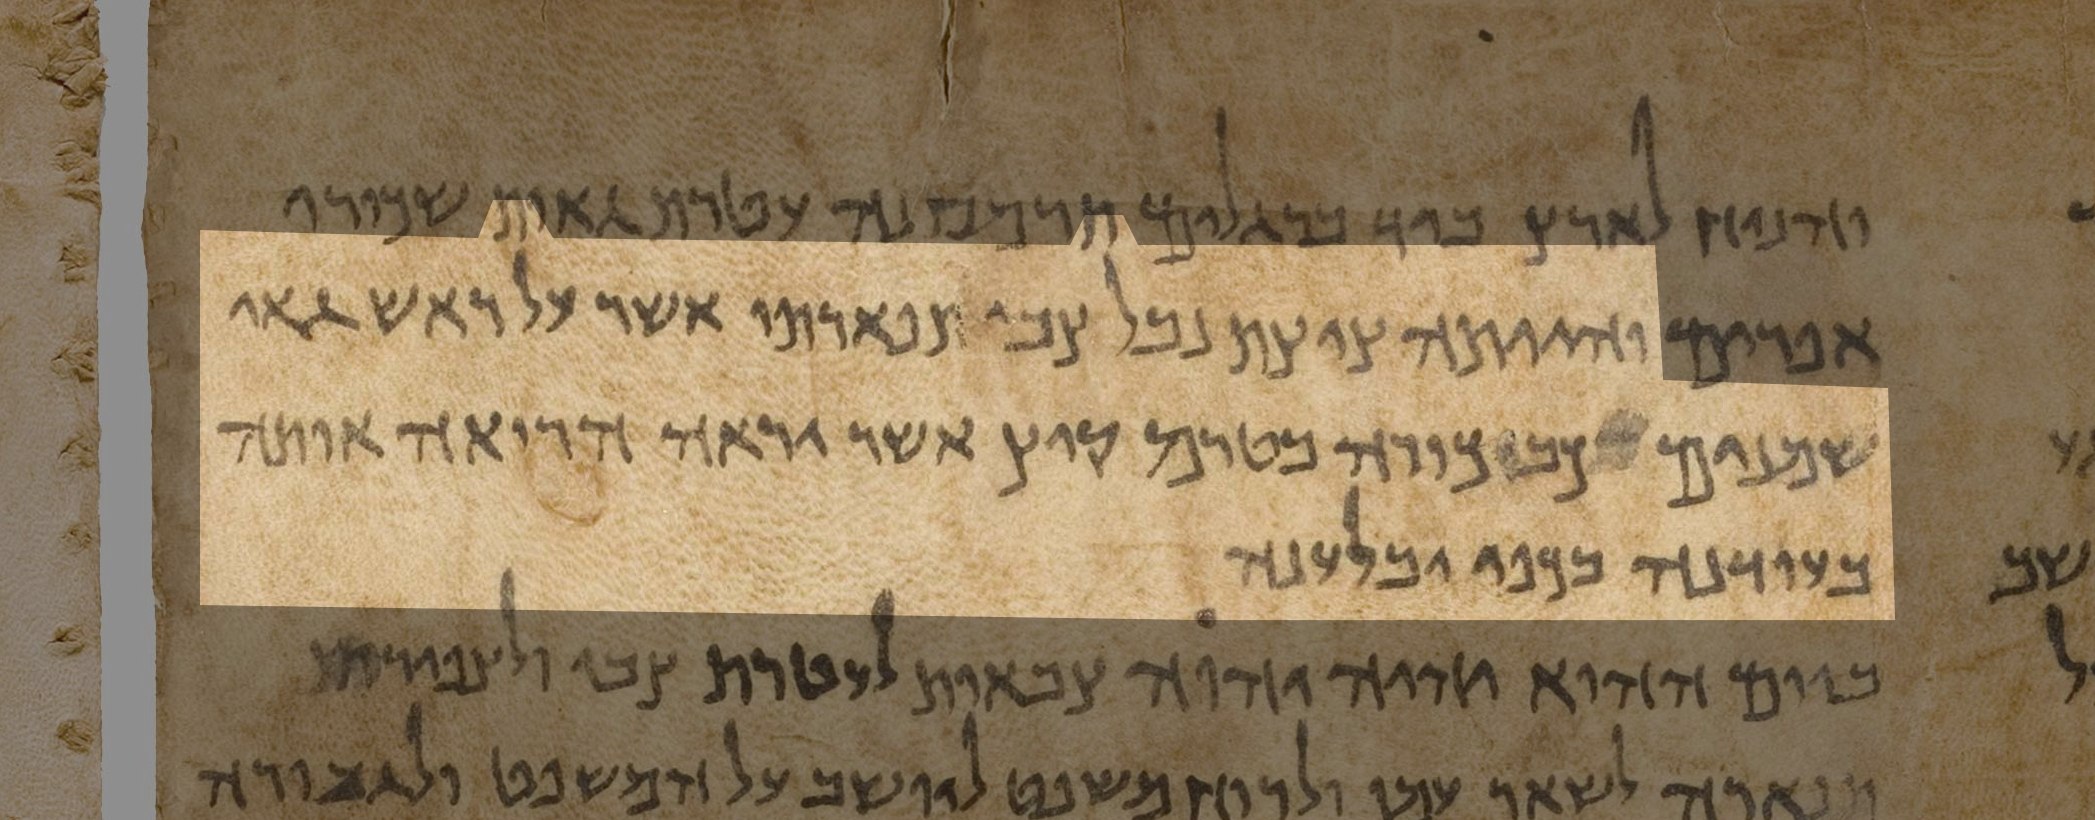 והניח לארץ ביד ברגלים תרמסנה עטרת גאות שכורי
אפרים והייתה ציצת נבל צבי תפארתו אשר על ראש גאי
שמנים כבכורה בטרם קיץ אשר יראה הרואה אותה
בעודנה בכפו יבלענה
ביום ההוא יהיה יהוה צבאות לעטרת צבי ולצפירת
תפארה לשאר עמו ולרוח משפט ליושב על המשפט ולגבורה